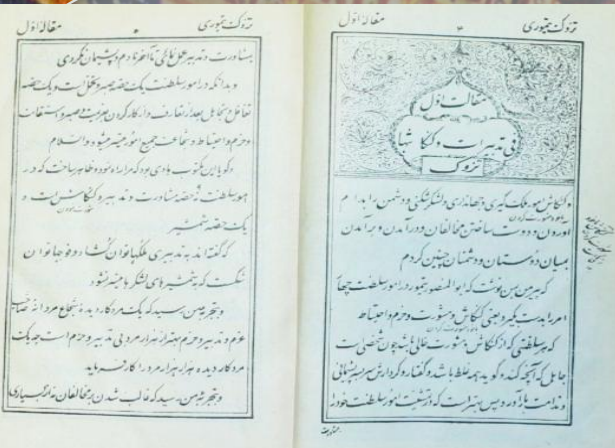 تزوک تیموری ۲ مقالهٔ اول
مقالت اول
فی تدبیرات و کنکاشها
تزوک
و کنکاش امور ملک گیری و جهانداری و لشکر شکنی و دشمن را بدام
آوردن و دوست ساختن مخالفان و درآمدن و برآمدن
بمیان دوستان و دشمنان چنین کردم
که پیر من بمن نوشت که ابوالمنصور تیمور در امور سلطنت چهار
امر را بدست گیرد یعنی کنکاش و مشورت و حزم و احتیاط
که هر سلطنتی که از کنکاش و مشورت خالی باشد چون شخصی است
جاهل که آنچه کند و گوید همه غلط باشد و گفتار و کردارش سر بسر پشیمانی
و ندامت بار آورد پس بهتر است که در تمشیت امور سلطنت خود به
تزوک تیموری مقالهٔ اول
بمشاورت و تدبیر عمل نمائی تا آخر نادم و پشیمان نگردی
و بدانکه در امور سلطنت یک حصه صبر و تحمل است و یک حصه
تغافل و تجاهل بعد از تعارف و از کار کردن عزیمت و صبر و استقامت
و حزم و احتیاط و شجاعت جمیع امور میسر میشود والسلام
گویا این مکتوب هادی بود که مرا راه نمود و ظاهر ساخت که در
امور سلطنت نه حصه مشاورت و تدبیر و کنکاش است و
یک حصه شمشیر
که گفته‌اند به تدبیری ملکها توان گشاد و فوجها توان
شکست که به شمشیرهای لشکرها میسر نشود
و بتجربه من رسید که یک مرد کاردیده شجاع مردانه صاحب
عزم و تدبیر و حزم بهتر از هزار مرد بی تدبیر و حزم است چه یک
مرد کاردیده هزار هزار مرد را کار فرماید
و بتجربه من رسید که غالب شدن بر مخالفان نه از بسیاری